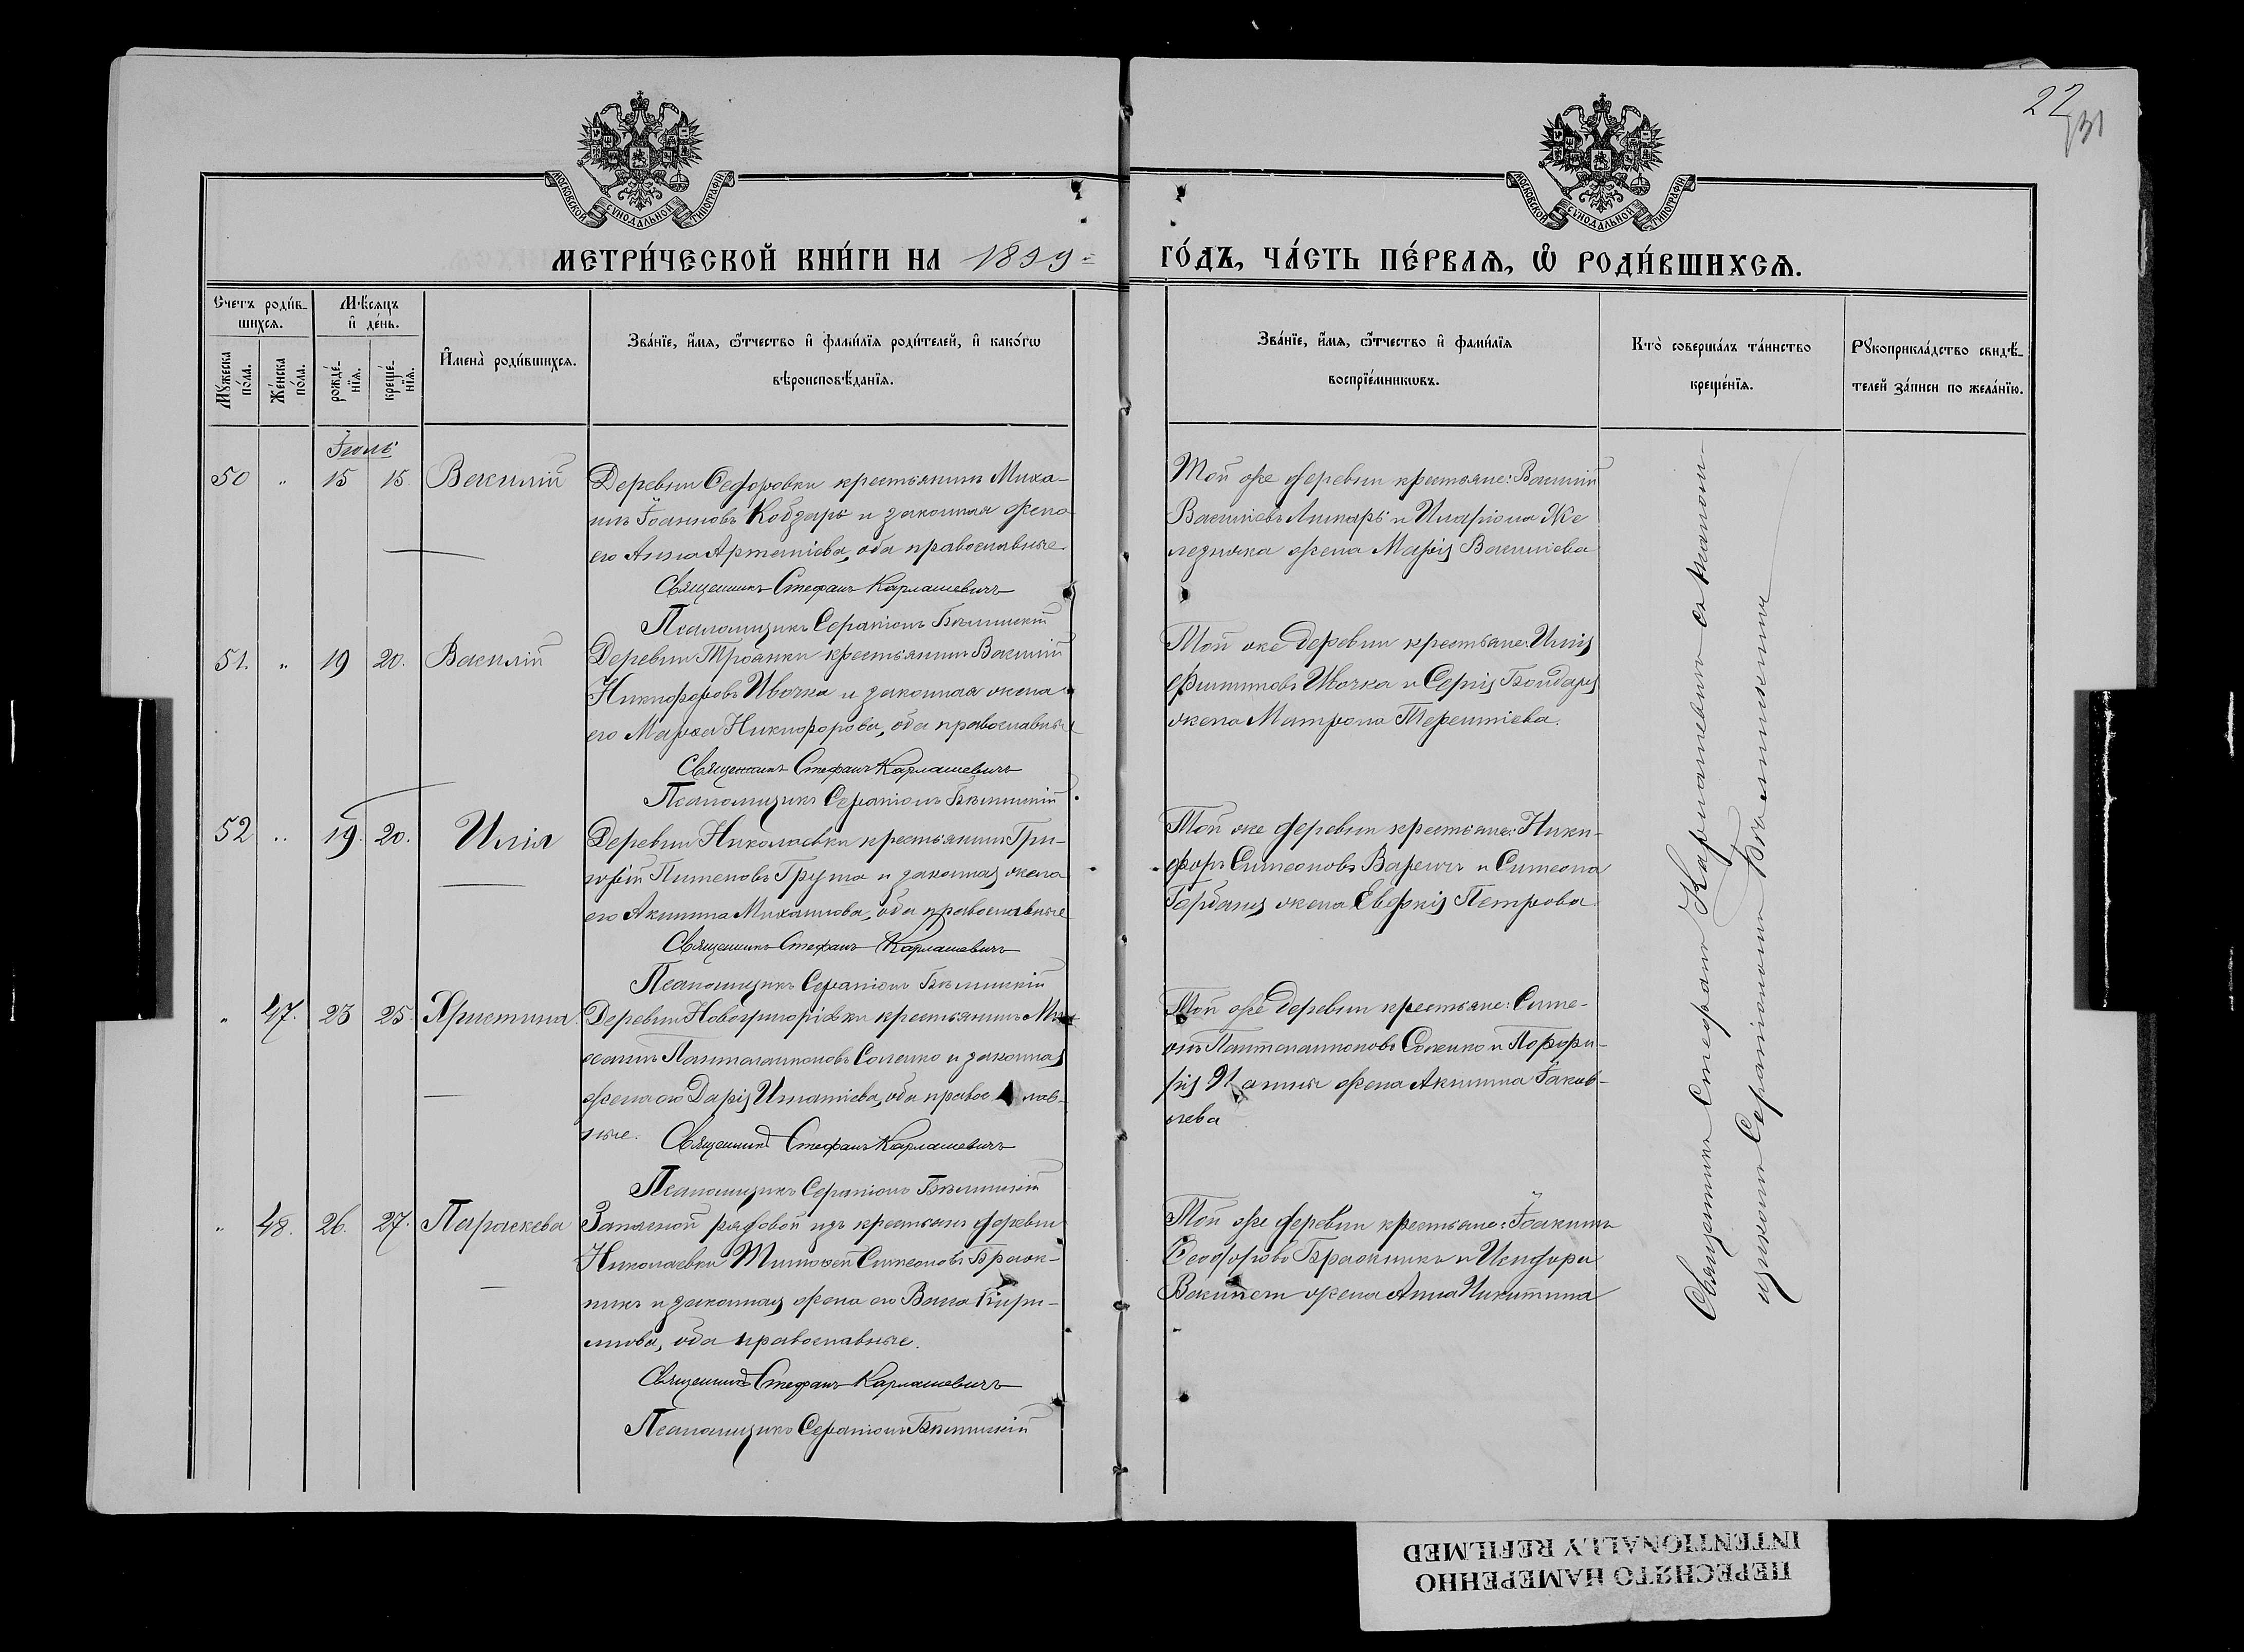 22
31
МОСКОВСКОЙ СУНОДАЛЬНОЙ ТИПОГРАФІИ
МОСКОВСКОЙ СУНОДАЛЬНОЙ ТИПОГРАФІИ
МЕТРИ́ЧЕСКОЙ КНИ́ГИ НА 1899
ГО́ДЪ, ЧА́СТЬ ПЕ́РВАЯ, Ѽ РОДИ́ВШИХСЯ.
Счетъ роди́в-
шихся.
Мѣ́сяцъ
и҆ де́нь.
Мꙋ́жеска
по́ла.
Же́нска
по́ла.
рожде́-
нїя.
креще́-
нїя.
И҆мена̀ роди́вшихся.
Зва́нїе, и҆́мя, ѻ҆́тчество и҆ фами́лїя роди́телей, и҆ како́гѡ
вѣроисповѣ́данїя.
Зва́нїе, и҆́мя, ѻ҆́тчество и҆ фами́лїя
воспрїе́мникѡвъ.
Кто̀ соверша́лъ та́инство
креще́нїя.
Рꙋкоприкла́дство свидѣ́-
телей за́писи по жела́нїю.
Іюль
50 " 15 15. Василій
Деревни Сефоровки крестьянинъ Миха-
илъ Іоанновъ Кобзарь и законная жена
его Анна Артеміева, оба православные
Священникъ Стефанъ Карлашевичъ
Псаломщикъ Серапіонъ
Той же деревни крестьяне: Василій
Васильевъ и Иларіона Же
жена Марія Васильева
51. " 19 20. Василій
Деревни Троянки крестьянинъ Василій
Никифоровъ Ивочка и законная жена
его Марѳа Никифорова, оба православные
Священникъ Стефанъ Карлашевичъ
Псаломщикъ Серапіонъ
Той же деревни крестьяне: Илія
Филиповъ Ивочка и Сергія Бондаря
жена Матрона Терентіева.
52 " 19. 20. Илія
Деревни Николаевки крестьянинъ Гри-
горій Пименовъ Груша и законная жена
его Акилина Михаилова, оба православные
Священникъ Стефанъ Карлашевичъ
Псаломщикъ Серапіонъ
Той же деревни крестьяне: Ники-
форъ Симеоновъ и Симеона
жена Евфимія Петрова
" 47. 23 25. Христина
Деревни Новогригорівки крестьянинъ
Пантелеимоновъ Соленко и законная
жена его Дарія Игнатіева, оба православ-
ные. Священникъ Стефанъ Карлашевичъ
Псаломщикъ Серапіонъ
Той же деревни крестьяне: Симе-
онъ Пантелеимоновъ Соленко и Порфи-
рія жена Акилина Іаков-
лева
" 48. 26. 27. Параскева
Запасной рядовой изъ крестьянъ деревни
Николаевки Тимоѳей Симеоновъ Браж-
никъ и законная жена его Васса Кири-
лова, оба православные.
Священникъ Стефанъ Карлашевичъ
Псаломщикъ Серапіонъ
Той же деревни крестьяне: Іоакимъ
Ѳеодоровъ Бражникъ и Исидора
жена Анна Никитина
Священникъ Стефанъ Карлашевичъ съ псалом-
щикомъ Серапіономъ
ПЕРЕСНЯТО НАМЕРЕННО
INTENTIONALLY REFILMED